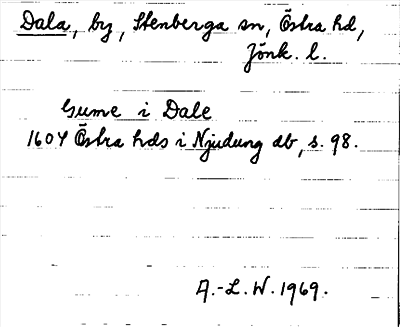 Dala, by, Stenberga sn, Östra hd,
Jönk. l.
Gume i Dale
1604 Östra hds i Njudung db, s. 98.
A.-L. W. 1969.